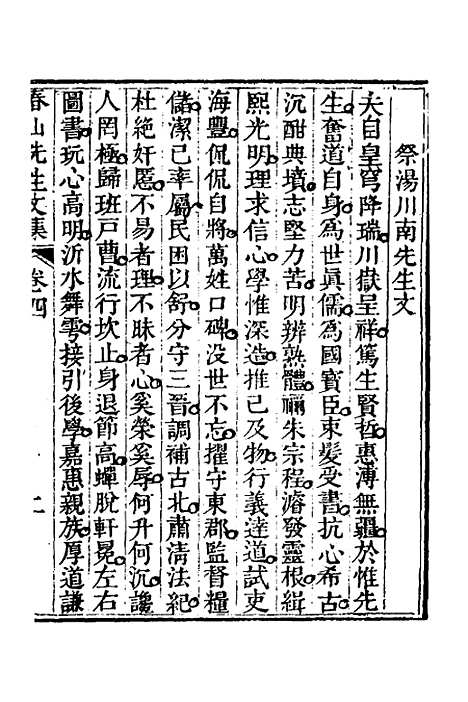 祭湯川南先生文
夫自皇穹降瑞川嶽呈祥篤生賢哲惠溥無疆於惟先
生奮道自身為世眞儒為國寶臣束髮受書抗心希古
沉酣典墳志堅力苦明辨熟體禰朱宗程濬發靈根緝
熙光明理求信心學惟深造推己及物行義達道試吏
海豐侃侃自將萬姓口碑没世不忘擢守東郡監督糧
儲潔己率屬民困以舒分守三晉調補古北肅清法紀
杜絶奸慝不易者理不昧者心奚榮奚辱何升何沉讒
人罔極歸班戸曹流行坎止身退節高蟬脫軒冕左右
圖書玩心高明沂水舞雩接引後學嘉惠親族厚道謙
春山先生文集 卷四